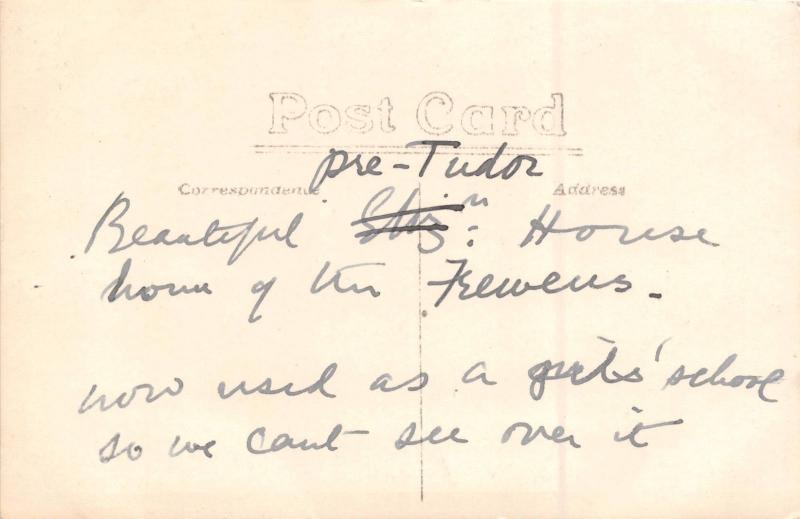 Post Card
pre-Tudor
Correspondence Address
Beautiful House
home of the Frewens.
now used as a girls' school
so we cant see over it